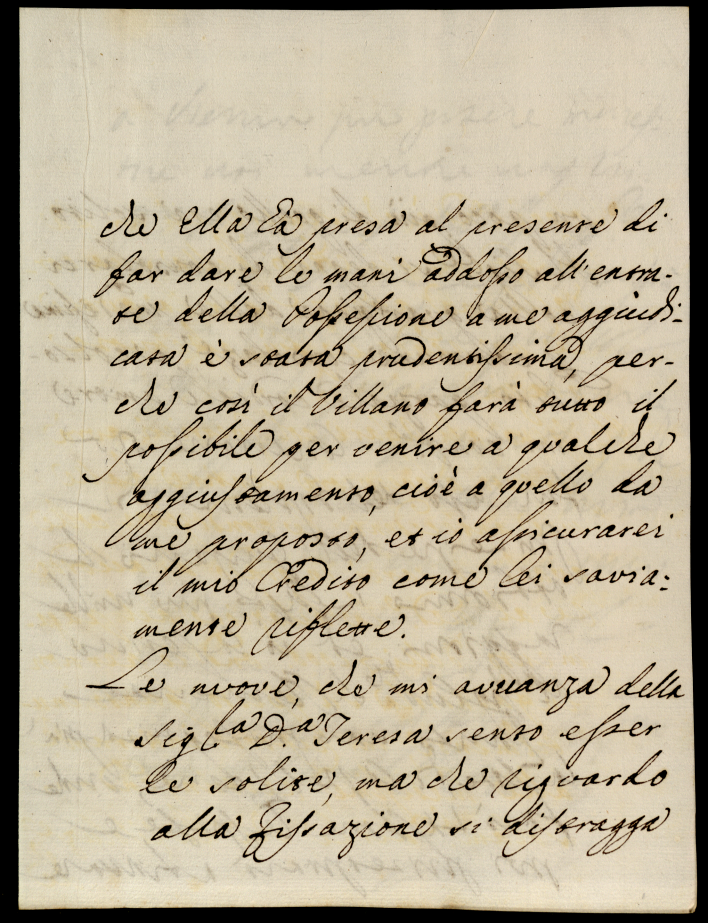 che Ella hà presa al presente di
far dare le mani addosso all'entra-
te della Possessione a me aggiudi-
cata è stata prudentissima, per-
che così il Villano farà tutto il
possibile per venire a qualche
aggiustamento, cioè a quello da
me proposto, et io assicurarei
il mio Credito come lei savia-
mente riflette.
Le nuove, che mi avvanza della
Sig.ra D.a Teresa sento esser
le solite, ma che riguardo
alla Fissazione si distragga